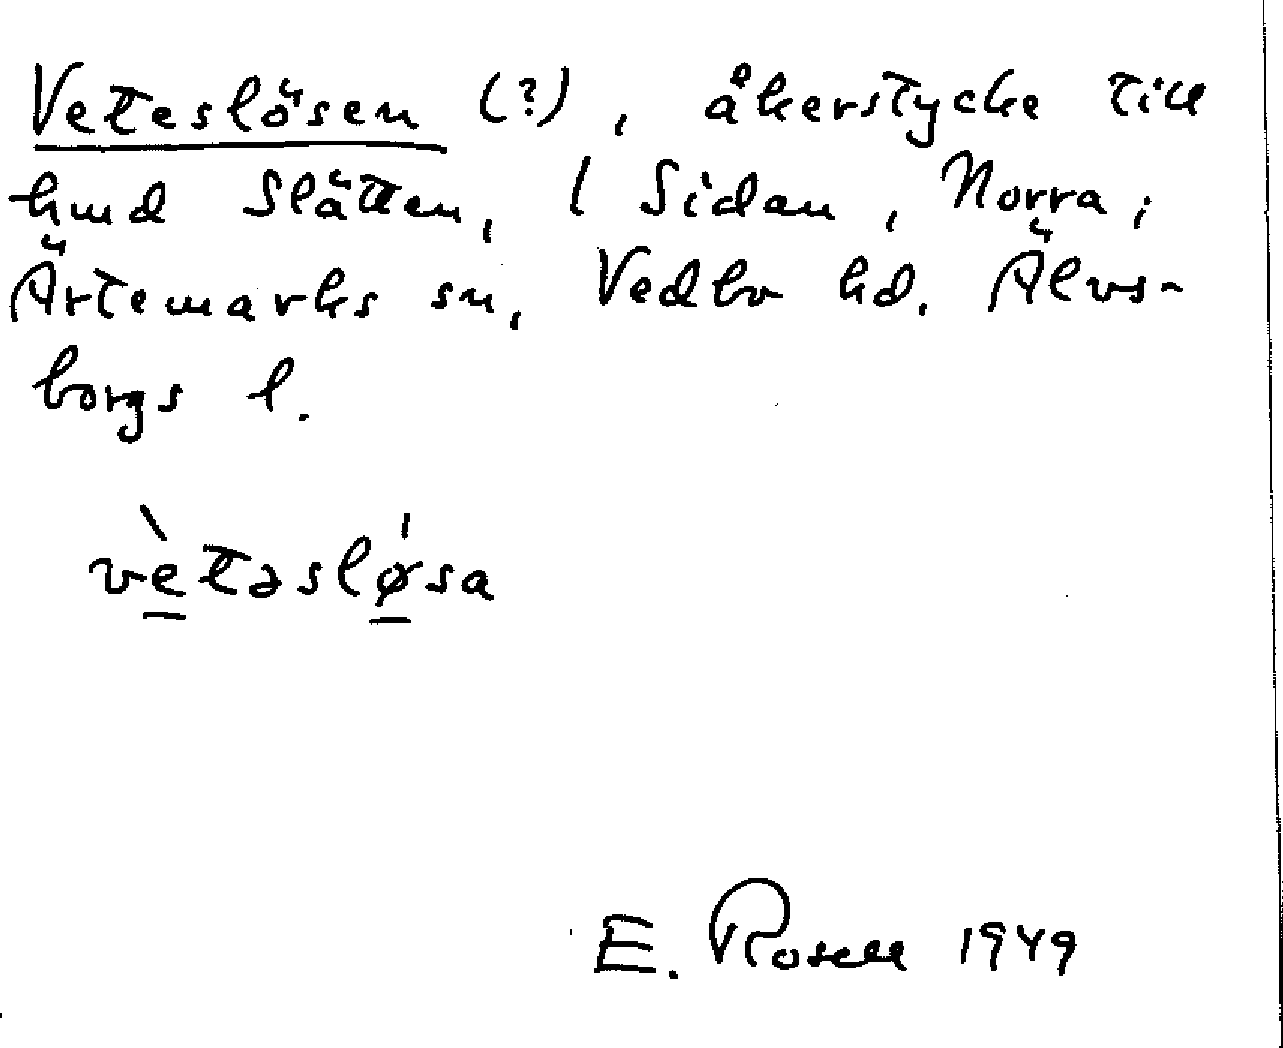 Veteslösen (?), åkerstycke till
hmd Slätten, l Sidan, Norra,
Ärtemarks sn, Vedbo hd. Älvs-
borgs l.
vètəsløsa
E. Rosell 1949